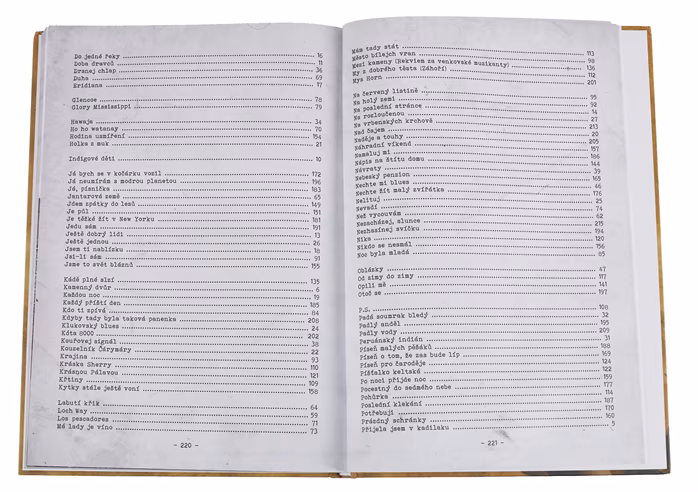 Do jedné řeky 16
Doba dravců 11
Drsnej chlap 36
Duha 69
Eridiana 17
Glencoe 78
Glory Mississippi 79
Hawaja 34
Ho ho watanay 70
Hodina usmíření 154
Holka z muk 21
Indigové děti 10
Já bych se v kočárku vozil 172
Já neumírám s modrou planetou 196
Já, písnička 183
Jantarové země 65
Jdem zpátky do lesů 149
Je půl 151
Je těžké žít v New Yorku 181
Jedu sám 191
Ještě dobrý lidi 13
Ještě jednou 26
Jsem ti nablízku 18
Jsi-li sám 91
Jsme to svět bláznů 155
Kádě plné slzí 135
Kamenný dvůr 6
Každou noc 19
Každý příští den 185
Kdo ti zpívá 84
Kdyby tady byla taková panenka 208
Klukovský blues 24
Kóta 8000 202
Kouřovej signál 38
Kouzelník Čárymáry 22
Krajina 93
Kráska Sherry 110
Krásnou Pálavou 121
Křtiny 109
Kytky stále ještě voní 158
Labutí křik 64
Loch Way 59
Los pescadores 71
Má lady je víno 73
- 220 -
Mám tady stát 113
Město bílejch vran 98
Mezi kameny (Rekviem za venkovské muzikanty) 136
My z dobrého těsta (Záhoří) 112
Mys Horn 201
Na červený listině 95
Na holý zemi 92
Na poslední stránce 14
Na rozloučenou 27
Na vrbenských krchově 213
Nad čajem 20
Naděje a touhy 205
Náhradní víkend 157
Namaluj mi 186
Nápis na štítu domu 144
Návraty 39
Nebeský pension 165
Nechte mi blues 46
Nechte žít malý zvířátka 176
Nelituj 25
Nevadí 74
Než vycouvám 62
Nezacházej, slunce 215
Nezhasínej svíčku 194
Nika 120
Nikdo se nesmál 156
Noc byla mladá 85
Oblázky 47
Od zimy do zimy 117
Opili mě 141
Otoč se 197
P.S. 108
Padá soumrak bledý 32
Padlý anděl 195
Padlý vody 209
Peruánský indián 31
Píseň malých pěšáků 188
Píseň o tom, že zas bude líp 169
Píseň pro čaroděje 124
Píšťalko keltská 122
Po noci přijde noc 159
Pocestný do sedmého nebe 177
Pohůrka 114
Poslední klekání 187
Potřebuji 170
Prázdný schránky 160
Přijela jsem v kadilaku 5
- 221 -